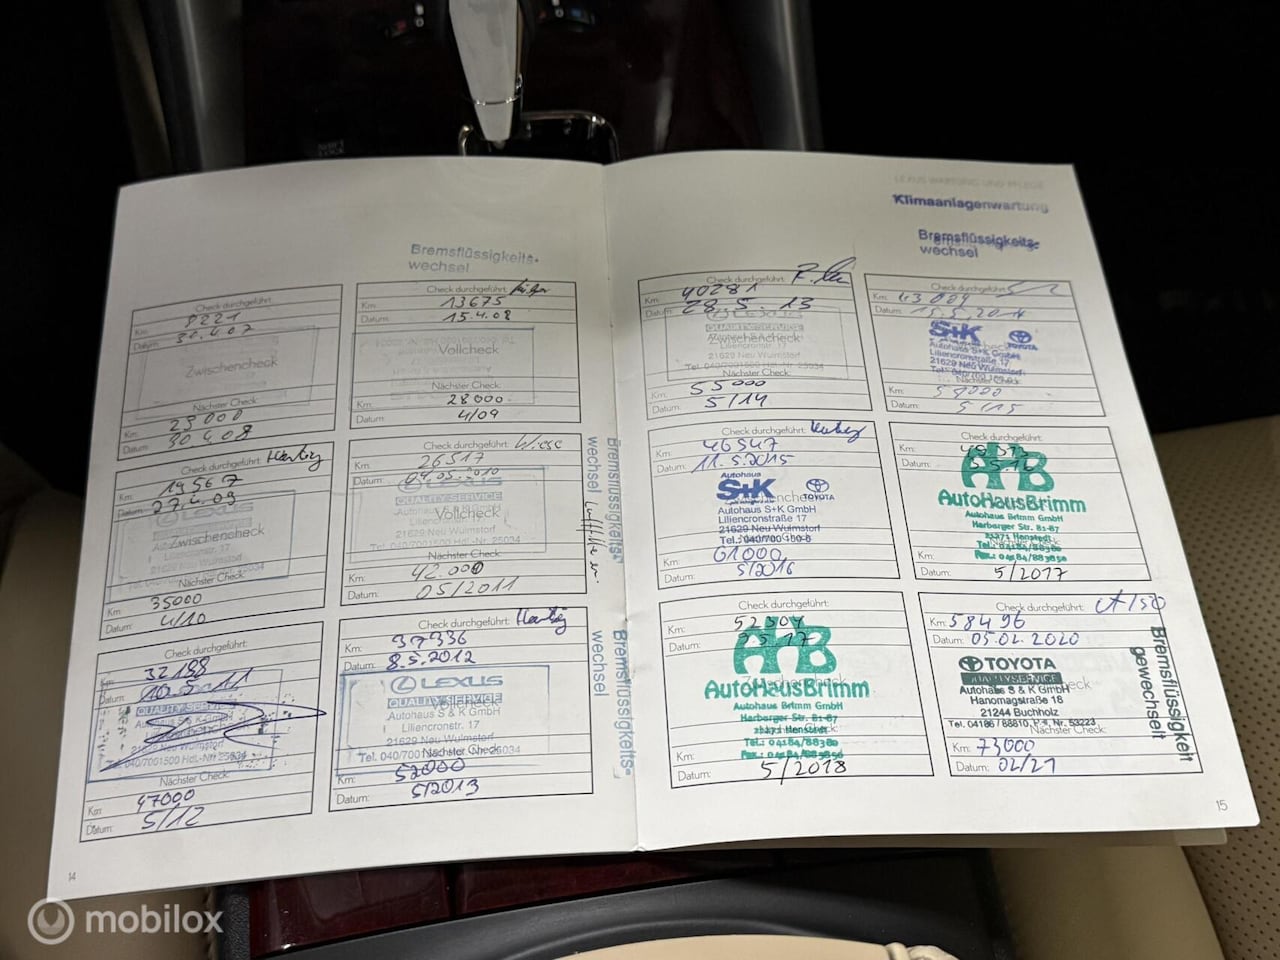 Bremsflüssigkeits-
wechsel
Check durchgeführt:
Km: 9221
Datum: 30.4.07
Zwischencheck
Nächster Check:
Km: 25000
Datum: 30 4.08
Check durchgeführt:
Km: 13675
Datum: 15.4.08
Vollcheck
Nächster Check:
Km: 28000
Datum: 4/09
Check durchgeführt:
Km: 19567
Datum: 27.4.09
LEXUS
Zwischencheck
Liliencronstr. 17
Nächster Check:
Km: 35000
Datum: 4/10
Check durchgeführt: Wiese
Km: 26517
Datum: 04.05.2010
LEXUS
QUALITY SERVICE
Autohaus S & K GmbH
Vollcheck
Liliencronstr. 17
Nächster Check:
Km: 42.000
Datum: 05/2011
Bremsflüssigkeits-
wechsel
Check durchgeführt:
Km: 32188
Datum:
QUALITY SERVICE
Autohaus S & K GmbH
Liliencronstr. 17
21629 Neu Wulmstorf
Tel. 040/7001500 Hdl.-Nr. 25034
Nächster Check:
Km: 47000
Datum: 5/12
Check durchgeführt:
Km: 37336
Datum: 8.5.2012
LEXUS
QUALITY SERVICE
Autohaus S & K GmbH
Liliencronstr. 17
21629 Neu Wulmstorf
Nächster Check:
Km: 52000
Datum: 5/2013
Bremsflüssigkeits-
wechsel
14
LEXUS WARTUNG UND PFLEGE
Klimaanlagenwartung
Bremsflüssigkeits-
wechsel
Check durchgeführt:
Km: 40281
Datum: 28.5.13
QUALITY SERVICE
Zwischencheck
Liliencronstr. 17
21629 Neu Wulmstorf
Nächster Check:
Km: 55000
Datum: 5/14
Check durchgeführt:
Km: 43009
Datum: 15.5.2014
S+K TOYOTA
Autohaus S&K GmbH
Liliencronstraße 17
21629 Neu Wulmstorf
Nächster Check:
Km: 58000
Datum: 5/15
Check durchgeführt:
Km: 46547
Datum: 11.5.2015
Autohaus
S+K TOYOTA
Autohaus S+K GmbH
Liliencronstraße 17
21629 Neu Wulmstorf
Tel.: 040/700 150-0
Km: 61000
Datum: 5/2016
Check durchgeführt:
Km:
Datum:
AHB
AutoHausBrimm
Autohaus Brimm GmbH
Harburger Str. 81-87
Tel.: 04184/88380
Fax.: 04184/883850
Datum: 5/2017
Check durchgeführt:
Km: 52304
Datum:
AHB
Zwischencheck
AutoHausBrimm
Autohaus Brimm GmbH
Harburger Str. 81-87
Tel.: 04184/88380
Fax.: 04184/883850
Km:
Datum: 5/2018
Check durchgeführt:
Km: 58496
Datum: 05.02.2020
TOYOTA
QUALITY SERVICE
Autohaus S & K GmbH
Hanomagstraße 18
21244 Buchholz
Nächster Check:
Km: 73000
Datum: 02/21
Bremsflüssigkeit
gewechselt
15
mobilox